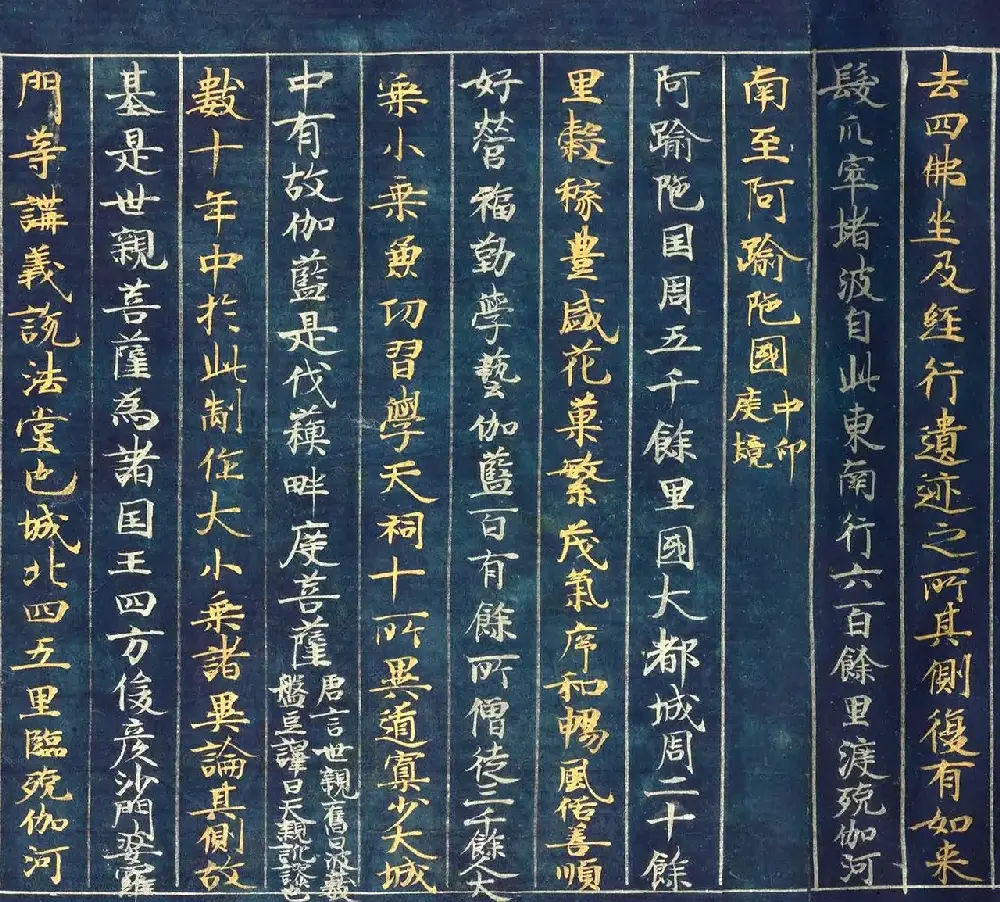 去四佛坐及経行遺迹之所其側復有如来
髮爪窣堵波自此東南行六百餘里渡殑伽河
南至阿踰陁國中印度境
阿踰陁国周五千餘里國大都城周二十餘
里穀稼豊盛花菓繁茂氣序和暢風俗善順
好營福勤學藝伽藍百有餘所僧徒三千餘人大
乗小乗兼功習學天祠十所異道寡少大城
中有故伽藍是伐蘓畔度菩薩唐言世親舊曰婆藪盤豆譯曰天親訛謬也
數十年中於此制作大小乗諸異論其側故
基是世親菩薩為諸国王四方俊彦沙門婆羅
門等講義說法堂也城北四五里臨殑伽河